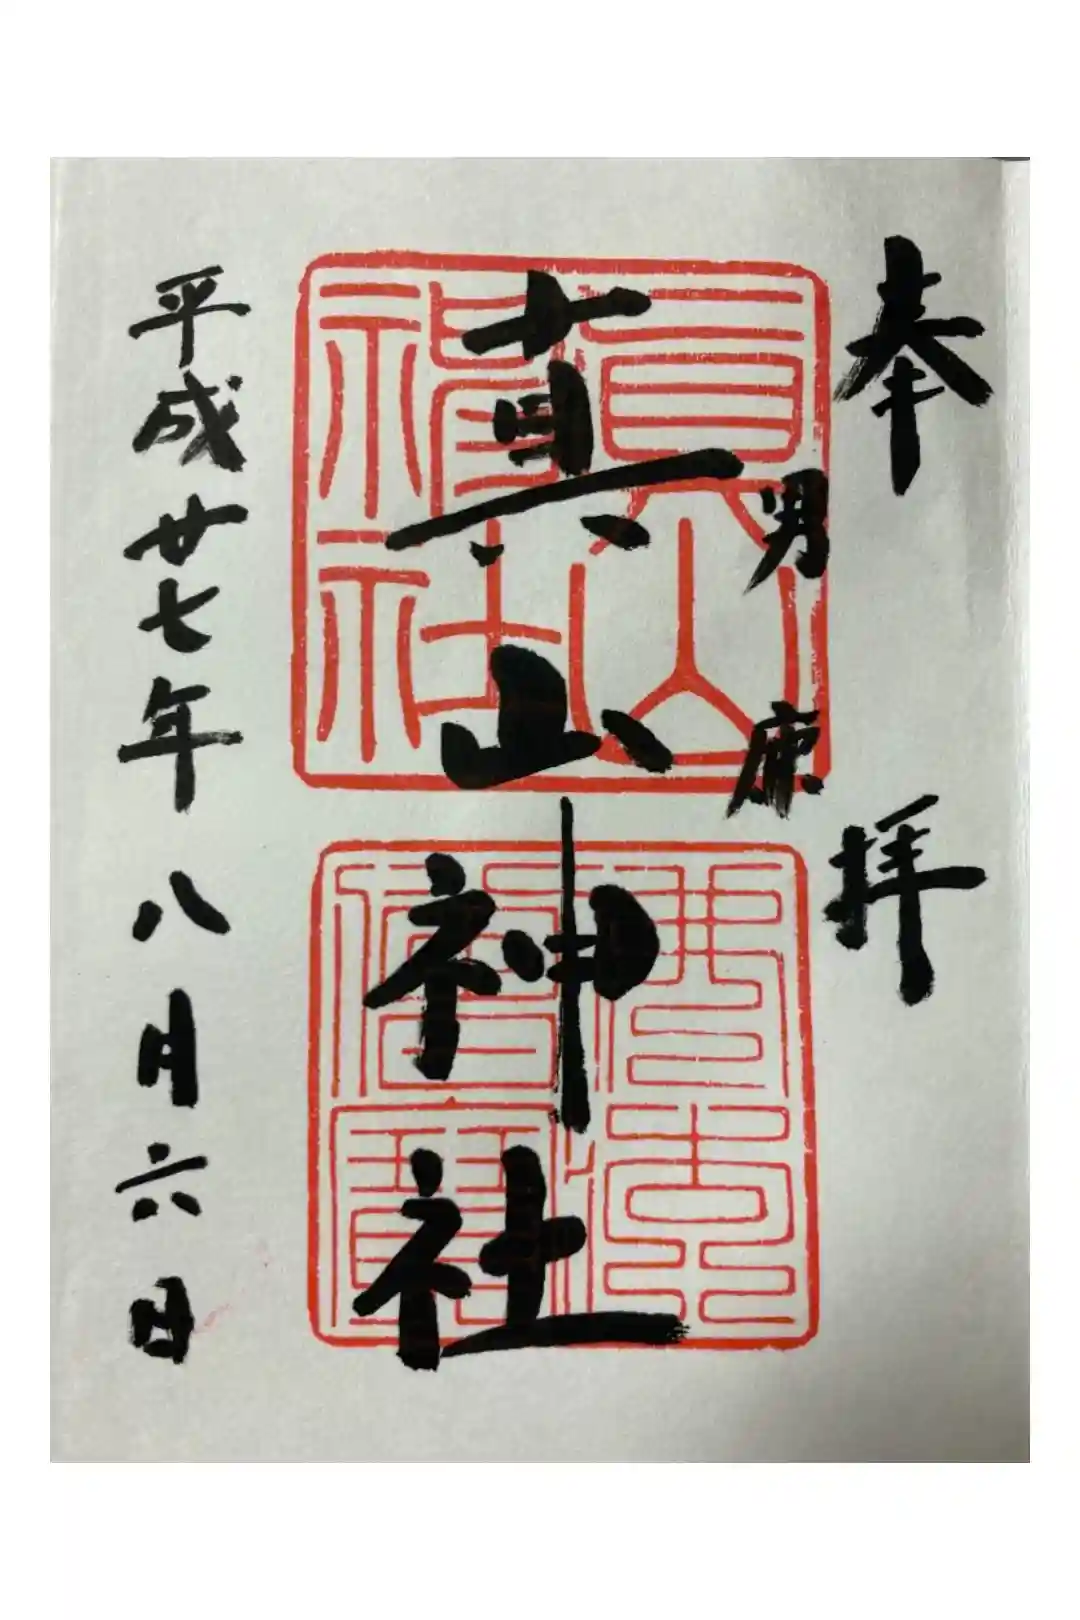 奉拝
男鹿
真山神社
眞山神社
平成廿七年八月六日